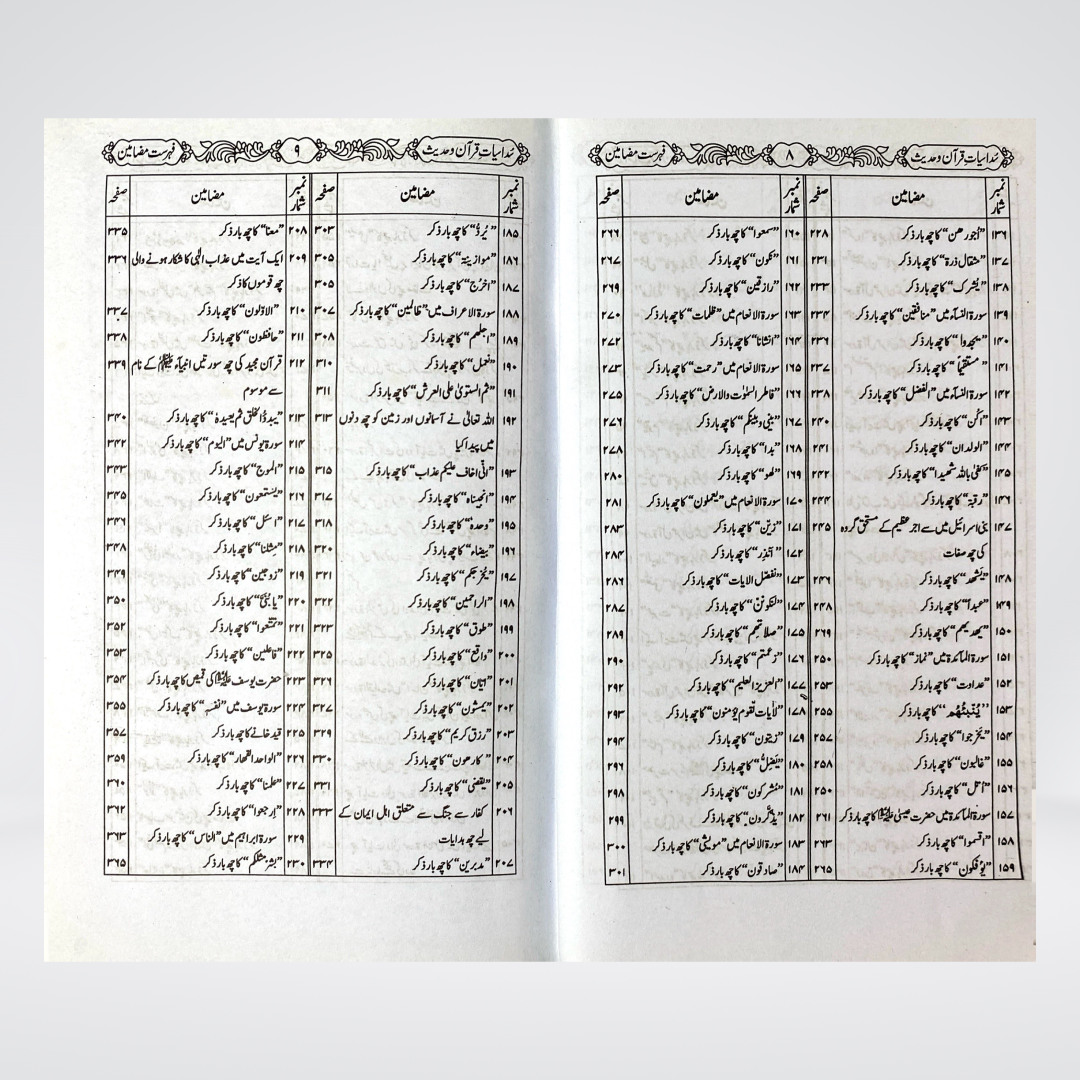 سُداسیاتِ قرآن و حدیث ۸ فہرست مضامین
نمبر شمار مضامین صفحہ نمبر شمار مضامین صفحہ
۱۳۶ ”اجورهن“ کا چھ بار ذکر ۲۲۸
۱۳۷ ”مثقال ذرة“ کا چھ بار ذکر ۲۳۱
۱۳۸ ”یشرک“ کا چھ بار ذکر ۲۳۳
۱۳۹ سورۃ النسآء میں ”منافقین“ کا چھ بار ذکر ۲۳۴
۱۴۰ ”یجدوا“ کا چھ بار ذکر ۲۳۶
۱۴۱ ”مستقیماً“ کا چھ بار ذکر ۲۳۷
۱۴۲ سورۃ النسآء میں ”الفضل“ کا چھ بار ذکر ۲۳۸
۱۴۳ ”اکن“ کا چھ بار ذکر ۲۴۰
۱۴۴ ”الولدان“ کا چھ بار ذکر ۲۴۱
۱۴۵ ”کفی باللہ شھیدا“ کا چھ بار ذکر ۲۴۲
۱۴۶ ”رقبۃ“ کا چھ بار ذکر ۲۴۴
۱۴۷ بنی اسرائیل میں سے اجر عظیم کے مستحق گروہ ۲۴۵
کی چھ صفات
۱۴۸ ”یشھد“ کا چھ بار ذکر ۲۴۶
۱۴۹ ”عبدا“ کا چھ بار ذکر ۲۴۸
۱۵۰ ”یھدیھم“ کا چھ بار ذکر ۲۶۹
۱۵۱ سورۃ المآئدۃ میں ”نماز“ کا چھ بار ذکر ۲۵۰
۱۵۲ ”عداوت“ کا چھ بار ذکر ۲۵۳
۱۵۳ ”یُنَبِّئُھُم“ کا چھ بار ذکر ۲۵۵
۱۵۴ ”یخرجوا“ کا چھ بار ذکر ۲۵۷
۱۵۵ ”غالبون“ کا چھ بار ذکر ۲۵۸
۱۵۶ ”اُحل“ کا چھ بار ذکر ۲۵۰
۱۵۷ سورۃ المآئدۃ میں حضرت عیسیٰ علیہ السلام کا چھ بار ذکر ۲۶۱
۱۵۸ ”اقسموا“ کا چھ بار ذکر ۲۶۳
۱۵۹ ”یؤفکون“ کا چھ بار ذکر ۲۶۵
۱۶۰ ”سمعوا“ کا چھ بار ذکر ۲۶۶
۱۶۱ ”نکون“ کا چھ بار ذکر ۲۶۷
۱۶۲ ”رازقین“ کا چھ بار ذکر ۲۶۹
۱۶۳ سورۃ الانعام میں ”ظلمات“ کا چھ بار ذکر ۲۷۰
۱۶۴ ”انشانا“ کا چھ بار ذکر ۲۷۲
۱۶۵ سورۃ الانعام میں ”رحمت“ کا چھ بار ذکر ۲۷۳
۱۶۶ ”فاطر السمٰوٰت والارض“ کا چھ بار ذکر ۲۷۵
۱۶۷ ”بینی وبینکم“ کا چھ بار ذکر ۲۷۶
۱۶۸ ”بدا“ کا چھ بار ذکر ۲۷۸
۱۶۹ ”لھو“ کا چھ بار ذکر ۲۸۰
۱۷۰ سورۃ الانعام میں ”یعملون“ کا چھ بار ذکر ۲۸۱
۱۷۱ ”زیّن“ کا چھ بار ذکر ۲۸۳
۱۷۲ ”اَنذِر“ کا چھ بار ذکر ۲۸۴
۱۷۳ ”نفصّل الایات“ کا چھ بار ذکر ۲۸۶
۱۷۴ ”لنکونن“ کا چھ بار ذکر ۲۸۷
۱۷۵ ”صلاتھم“ کا چھ بار ذکر ۲۸۹
۱۷۶ ”زعمتم“ کا چھ بار ذکر ۲۹۰
۱۷۷ ”العزیز العلیم“ کا چھ بار ذکر ۲۹۲
۱۷۸ ”لآیات لقوم یؤمنون“ کا چھ بار ذکر ۲۹۳
۱۷۹ ”زیتون“ کا چھ بار ذکر ۲۹۴
۱۸۰ ”یَضِلُّ“ کا چھ بار ذکر ۲۹۶
۱۸۱ ”مشرکون“ کا چھ بار ذکر ۲۹۸
۱۸۲ ”یذّکّرون“ کا چھ بار ذکر ۲۹۹
۱۸۳ سورۃ الانعام میں ”مویشی“ کا چھ بار ذکر ۳۰۰
۱۸۴ ”صادقون“ کا چھ بار ذکر ۳۰۱
سُداسیاتِ قرآن و حدیث ۹ فہرست مضامین
نمبر شمار مضامین صفحہ نمبر شمار مضامین صفحہ
۱۸۵ ”یُرَدُّ“ کا چھ بار ذکر ۳۰۳
۱۸۶ ”موازینہ“ کا چھ بار ذکر ۳۰۵
۱۸۷ ”اخرُج“ کا چھ بار ذکر ۳۰۵
۱۸۸ سورۃ الاعراف میں ”ظالمین“ کا چھ بار ذکر ۳۰۷
۱۸۹ ”اجلھم“ کا چھ بار ذکر ۳۰۸
۱۹۰ ”نعمل“ کا چھ بار ذکر ۳۱۰
۱۹۱ ”ثم استویٰ علی العرش“ کا چھ بار ذکر ۳۱۱
۱۹۲ اللہ تعالیٰ نے آسمانوں اور زمین کو چھ دنوں ۳۱۳
میں پیدا کیا
۱۹۳ ”انّی اخاف علیکم عذاب“ کا چھ بار ذکر ۳۱۵
۱۹۴ ”انجیناہ“ کا چھ بار ذکر ۳۱۷
۱۹۵ ”وحدہ“ کا چھ بار ذکر ۳۱۸
۱۹۶ ”بیضاء“ کا چھ بار ذکر ۳۲۰
۱۹۷ ”یخرجکم“ کا چھ بار ذکر ۳۲۱
۱۹۸ ”الراحمین“ کا چھ بار ذکر ۳۲۲
۱۹۹ ”طوق“ کا چھ بار ذکر ۳۲۳
۲۰۰ ”واقع“ کا چھ بار ذکر ۳۲۵
۲۰۱ ”ایّان“ کا چھ بار ذکر ۳۲۶
۲۰۲ ”یمشون“ کا چھ بار ذکر ۳۲۷
۲۰۳ ”رزق کریم“ کا چھ بار ذکر ۳۲۹
۲۰۴ ”کارھون“ کا چھ بار ذکر ۳۳۰
۲۰۵ ”یقضی“ کا چھ بار ذکر ۳۳۱
۲۰۶ کفار سے جنگ سے متعلق اہل ایمان کے ۳۳۳
لیے چھ ہدایات
۲۰۷ ”مدبرین“ کا چھ بار ذکر ۳۳۴
۲۰۸ ”معنا“ کا چھ بار ذکر ۳۳۵
۲۰۹ ایک آیت میں عذاب الٰہی کا شکار ہونے والی ۳۳۶
چھ قوموں کا ذکر
۲۱۰ ”الاوّلون“ کا چھ بار ذکر ۳۳۷
۲۱۱ ”حافظون“ کا چھ بار ذکر ۳۳۸
۲۱۲ قرآن مجید کی چھ سورتیں انبیآء علیہم السلام کے نام ۳۳۹
سے موسوم
۲۱۳ ”یبدؤا الخلق ثم یعیدہ“ کا چھ بار ذکر ۳۴۰
۲۱۴ سورۃ یونس میں ”الیوم“ کا چھ بار ذکر ۳۴۲
۲۱۵ ”الموج“ کا چھ بار ذکر ۳۴۳
۲۱۶ ”یستمعون“ کا چھ بار ذکر ۳۴۵
۲۱۷ ”اسئل“ کا چھ بار ذکر ۳۴۶
۲۱۸ ”مثلنا“ کا چھ بار ذکر ۳۴۸
۲۱۹ ”زوجین“ کا چھ بار ذکر ۳۴۹
۲۲۰ ”یا بنیّ“ کا چھ بار ذکر ۳۵۰
۲۲۱ ”تمتّعوا“ کا چھ بار ذکر ۳۵۲
۲۲۲ ”فاعلین“ کا چھ بار ذکر ۳۵۳
۲۲۳ حضرت یوسف علیہ السلام کی قمیص کا چھ بار ذکر ۳۵۴
۲۲۴ سورۃ یوسف میں ”نفسہ“ کا چھ بار ذکر ۳۵۵
۲۲۵ قید خانے کا چھ بار ذکر ۳۵۷
۲۲۶ ”الواحد القھار“ کا چھ بار ذکر ۳۵۹
۲۲۷ ”علمنا“ کا چھ بار ذکر ۳۶۰
۲۲۸ ”اِرجعوا“ کا چھ بار ذکر ۳۶۲
۲۲۹ سورۃ ابراہیم میں ”الناس“ کا چھ بار ذکر ۳۶۳
۲۳۰ ”بشر مثلکم“ کا چھ بار ذکر ۳۶۵